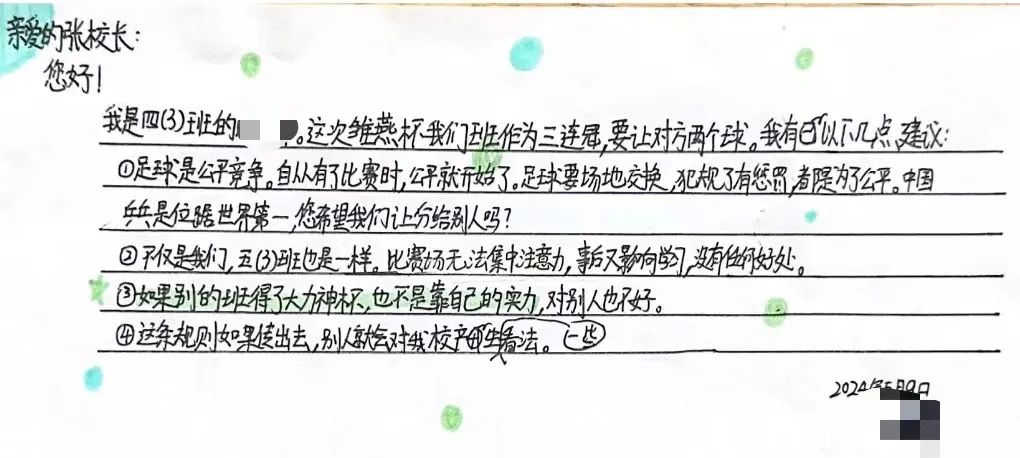 亲爱的张校长：
您好！
我是四(3)班的 。这次雏燕杯我们班作为三连冠，要让对方两个球。我有以下几点建议：
①足球是公平竞争。自从有了比赛时，公平就开始了。足球要场地交换，犯规了有惩罚，都是为了公平。中国
乒兵是位踞世界第一，您希望我们让分给别人吗？
②不仅是我们，五(3)班也是一样。比赛场无法集中注意力，事后又影向学习，没有任何好处。
③如果别的班得了大力神杯，也不是靠自己的实力，对别人也不好。
④这条规则如果传出去，别人就会对我校产生一些看法。
2024年5月9日